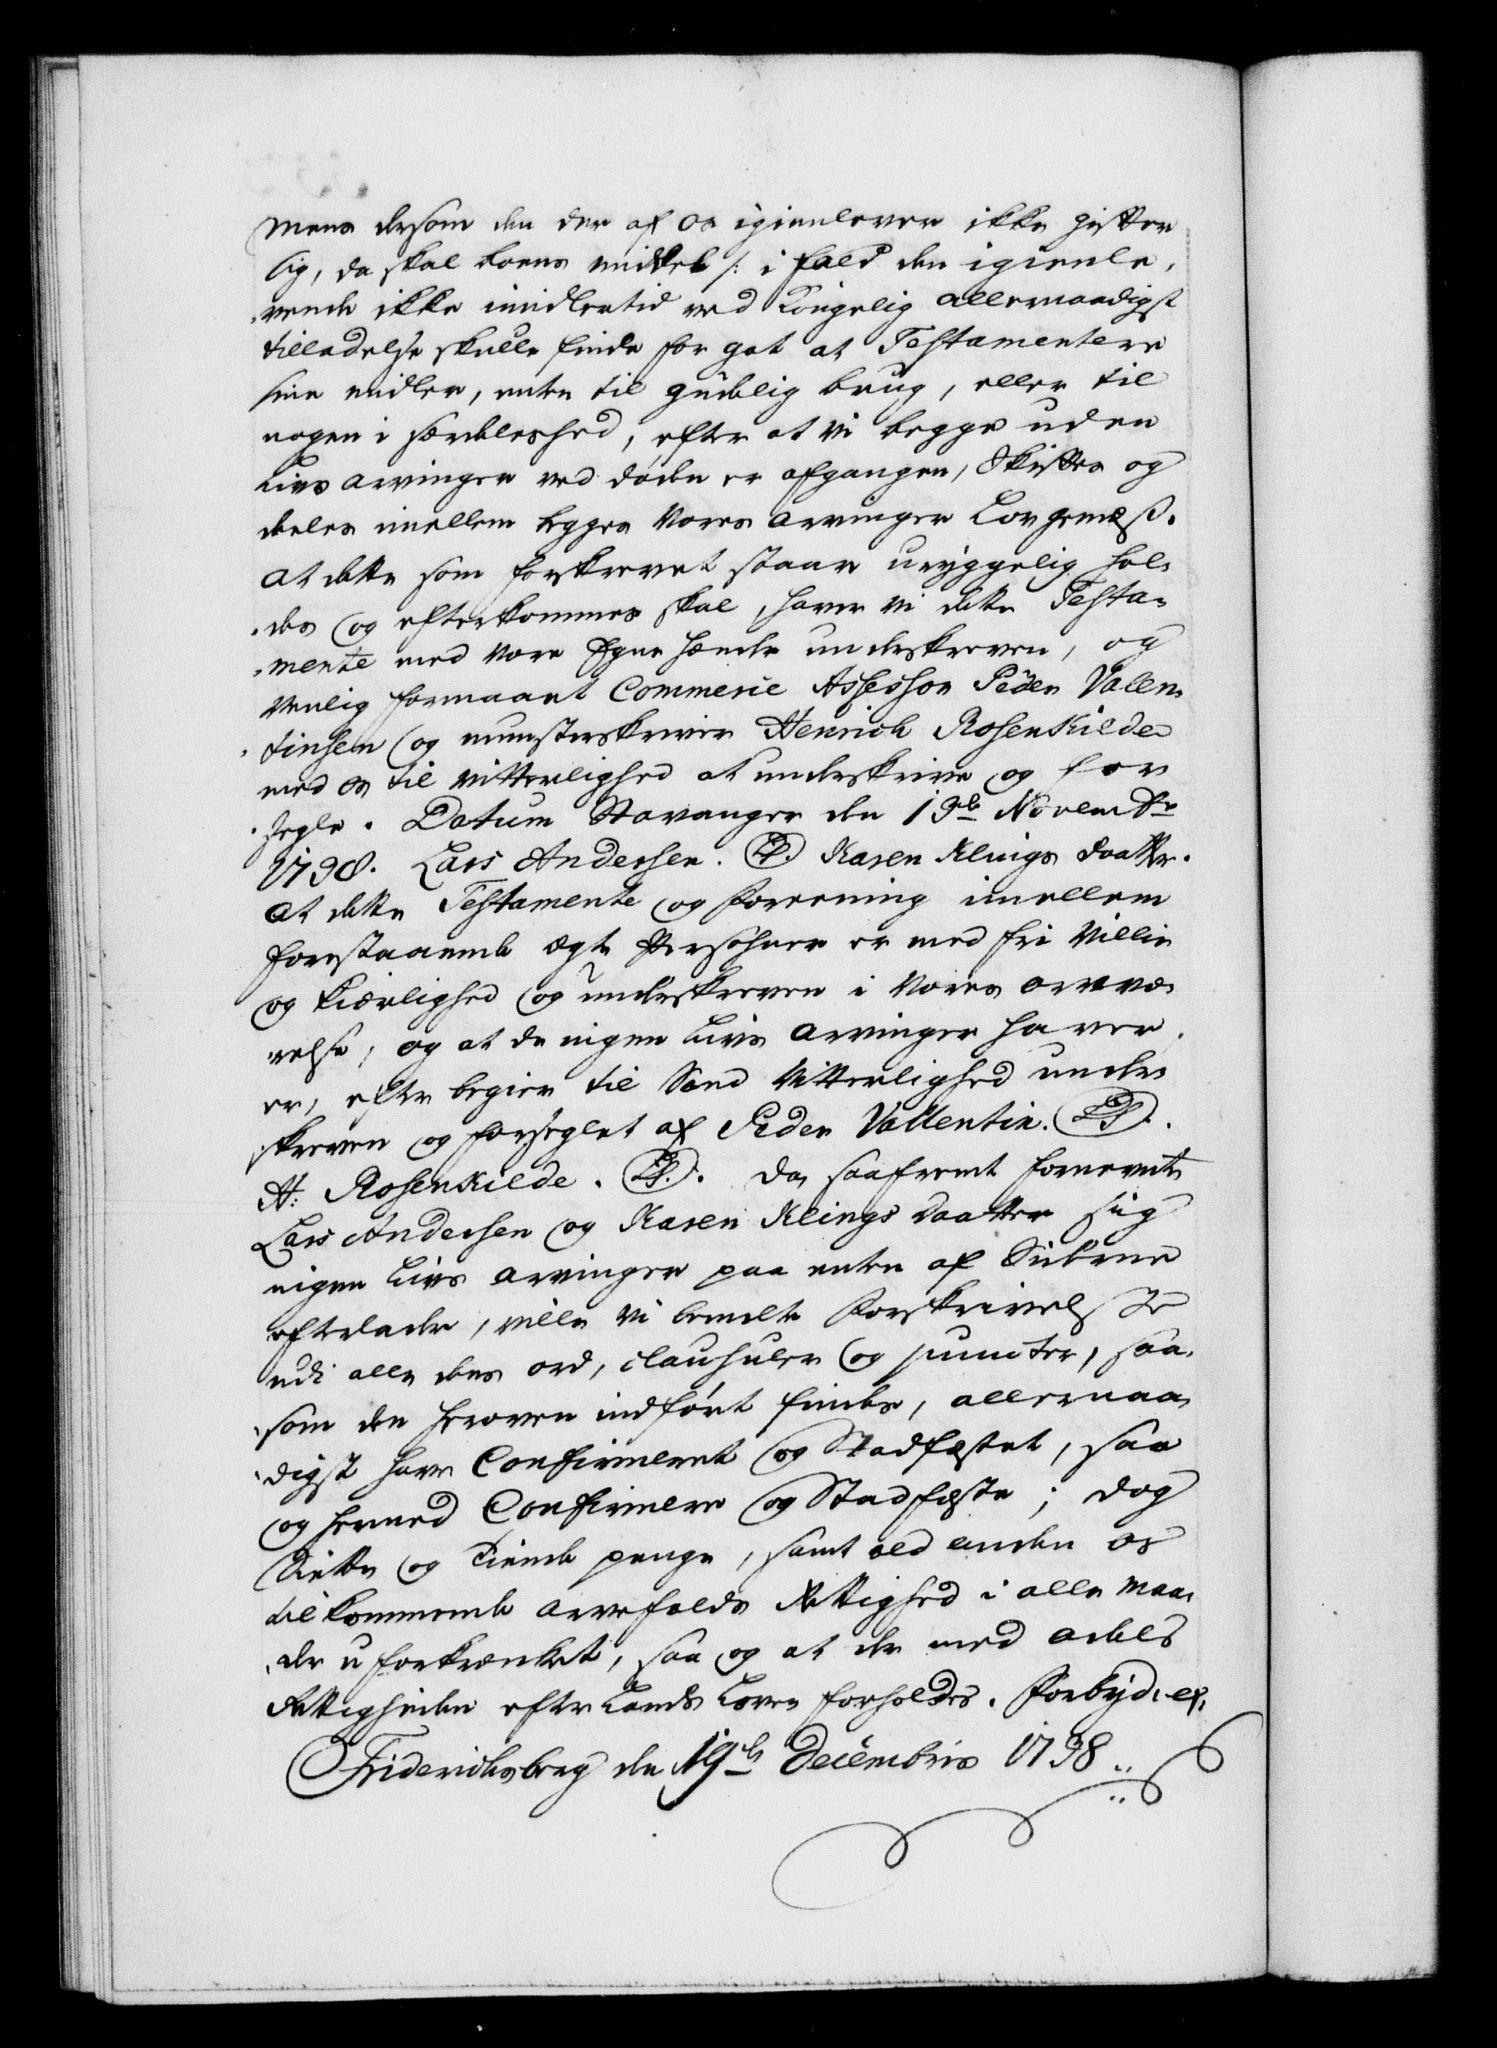 Mens dersom den der af os igienlever ikke gifter
sig, da skal boens middel /: i fald den igienle,
,vende ikke imidlertid ved Kongelig allernaadigst
tilladelse skulle finde for got at Testamentere
sine midler, enten til gudelig brug, eller til
nogen i særdeleshed, efter at vi begge uden
Livs arvinger ved døden er afgangen, Skiftes og
deeles imellem begges Vores arvinger Lovgemæß.
At dette som forskrevet staar uryggelig hol,
,des og efterkommes skal, haver vi dette Testa,
,mente med vore Egne hænder underskreven, og
venlig formaaet Commerie Assessor Peder Vallen,
,tinsen og munsterskriver Henrich Rosenkilde
med os til vitterlighed at underskrive og for
,segle. Datum Stavanger den 19de Novembr
1738. Lars Andersen. (LS.) Karen Klings daatter.
At dette Testamente og Foreening imellem
forestaaende ægte Persohner er med fri Villie
og kiærlighed og underskreven i Vores overvæ,
,relse, og at de ingen Livs arvinger haver,
er, efter begier til Sand Vitterlighed under,
skreven og forseglet af Peder Vallentin. (LS).
H: Rosenkilde. (LS.). Da, saafremt fornevnte
Lars Andersen og Karen Klings Daatter sig
ingen Livs arvinger paa enten af Siderne
efterlader, ville vi bemelte Forskrivelse
udi alle dens ord, clausuler og puncter, saa,
,som den heroven indført findes, allernaa,
,digst have Confirmeret og Stadfæstet, saa
og hermed Confirmere og Stadfæste; dog
Siette og Tiende penge, samt ald anden os
tilkommende arvefalds Rettighed i alle maa,
,der uforkrænket, saa og at der med adels
Rettigheden efter Lands Loven forholdes. Forbyd: ex,
Friderichsberg den 19de Decembris 1738.